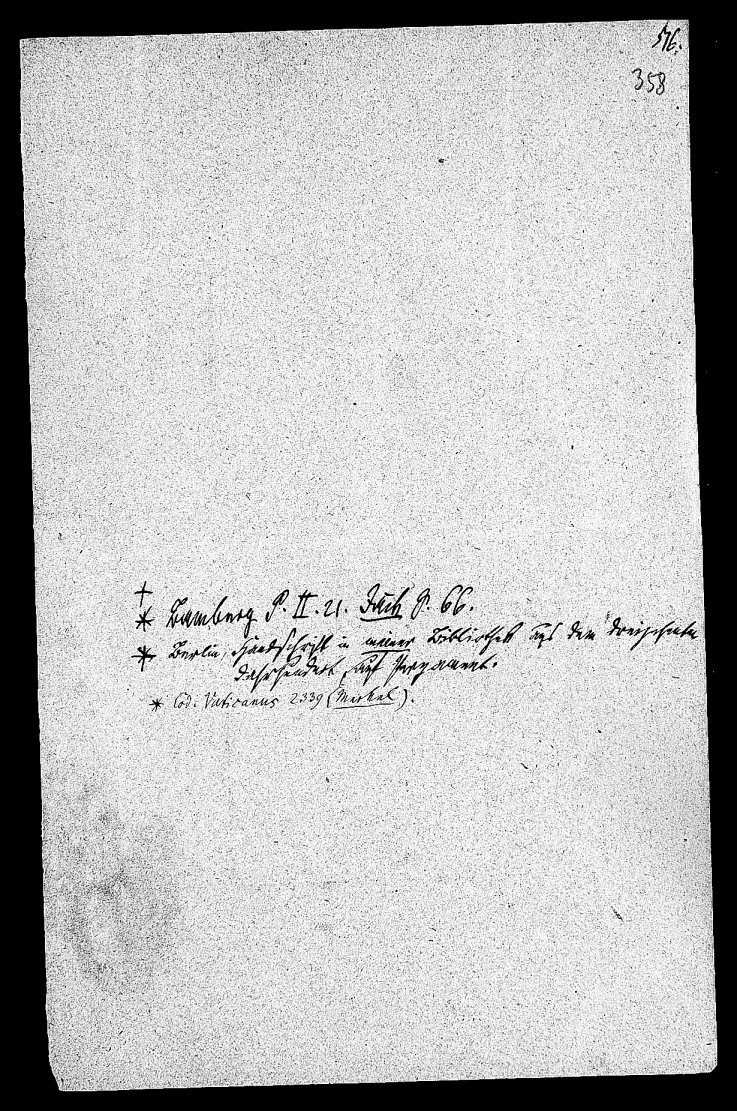 576.
358
+
* Bamberg P. II. 21. Jäck S. 66.
* Berlin, Handschrift in meiner Bibliothek aus dem dreizehnten
Jahrhundert, auf Pergament.
* Cod. Vaticanus 2339 (Merkel).